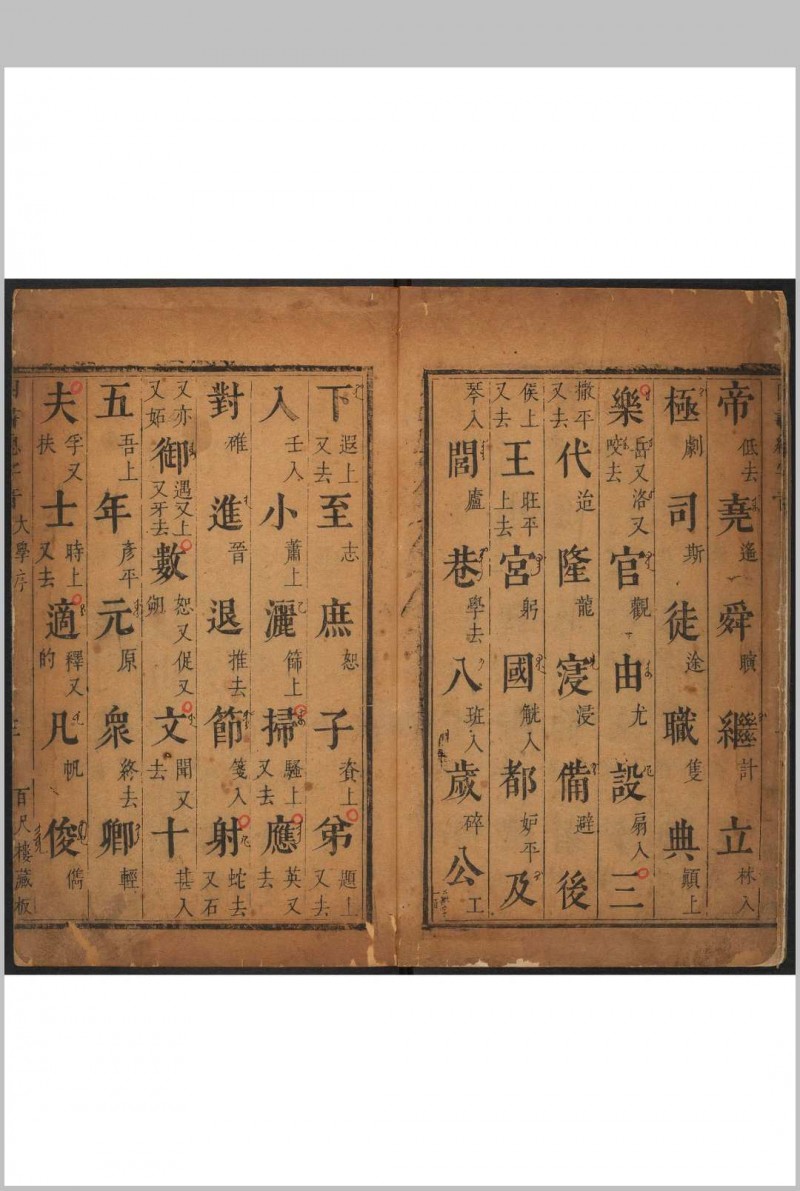 帝低去堯遙舜瞚繼計立林入
極劇司斯徒途職隻典顛上
樂岳又洛又咬去官觀由尤設扇入三
撒平又去代迨隆龍寖浸備避後
侯上又去王旺平上去宮躬國觥入都妒平及
琴入閭廬巷學去八班入歲碎公工
下遐上又去至志庶恕子㳄上弟題上又去
入壬入小蕭上灑篩上掃騷上又去應英又去
對碓進晉退推去節箋入射蛇去又石
又亦又妬御遇又上又牙去數恕又促又文聞又去十甚入
五吾上年彥平元原衆終去卿輕
夫孚又扶士時上又去適釋又的凡帆俊儁
大學序
百尺樓藏板